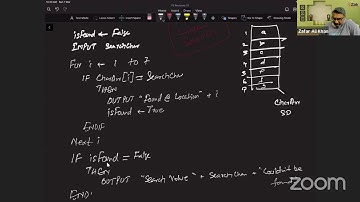 Zafar Ali Khan
isFound ← False
INPUT SearchChar
For i ← 1 to 7
IF CharArr[i] = SearchChar
THEN
OUTPUT "Found @ Location" + i
isFound ← True
ENDIF
Next i
IF isFound = False
THEN
OUTPUT "Search Value" + SearchChar + "Couldn't be found"
ENDI
1 a
2 b
3
4
5
6
7
CharArr
zoom